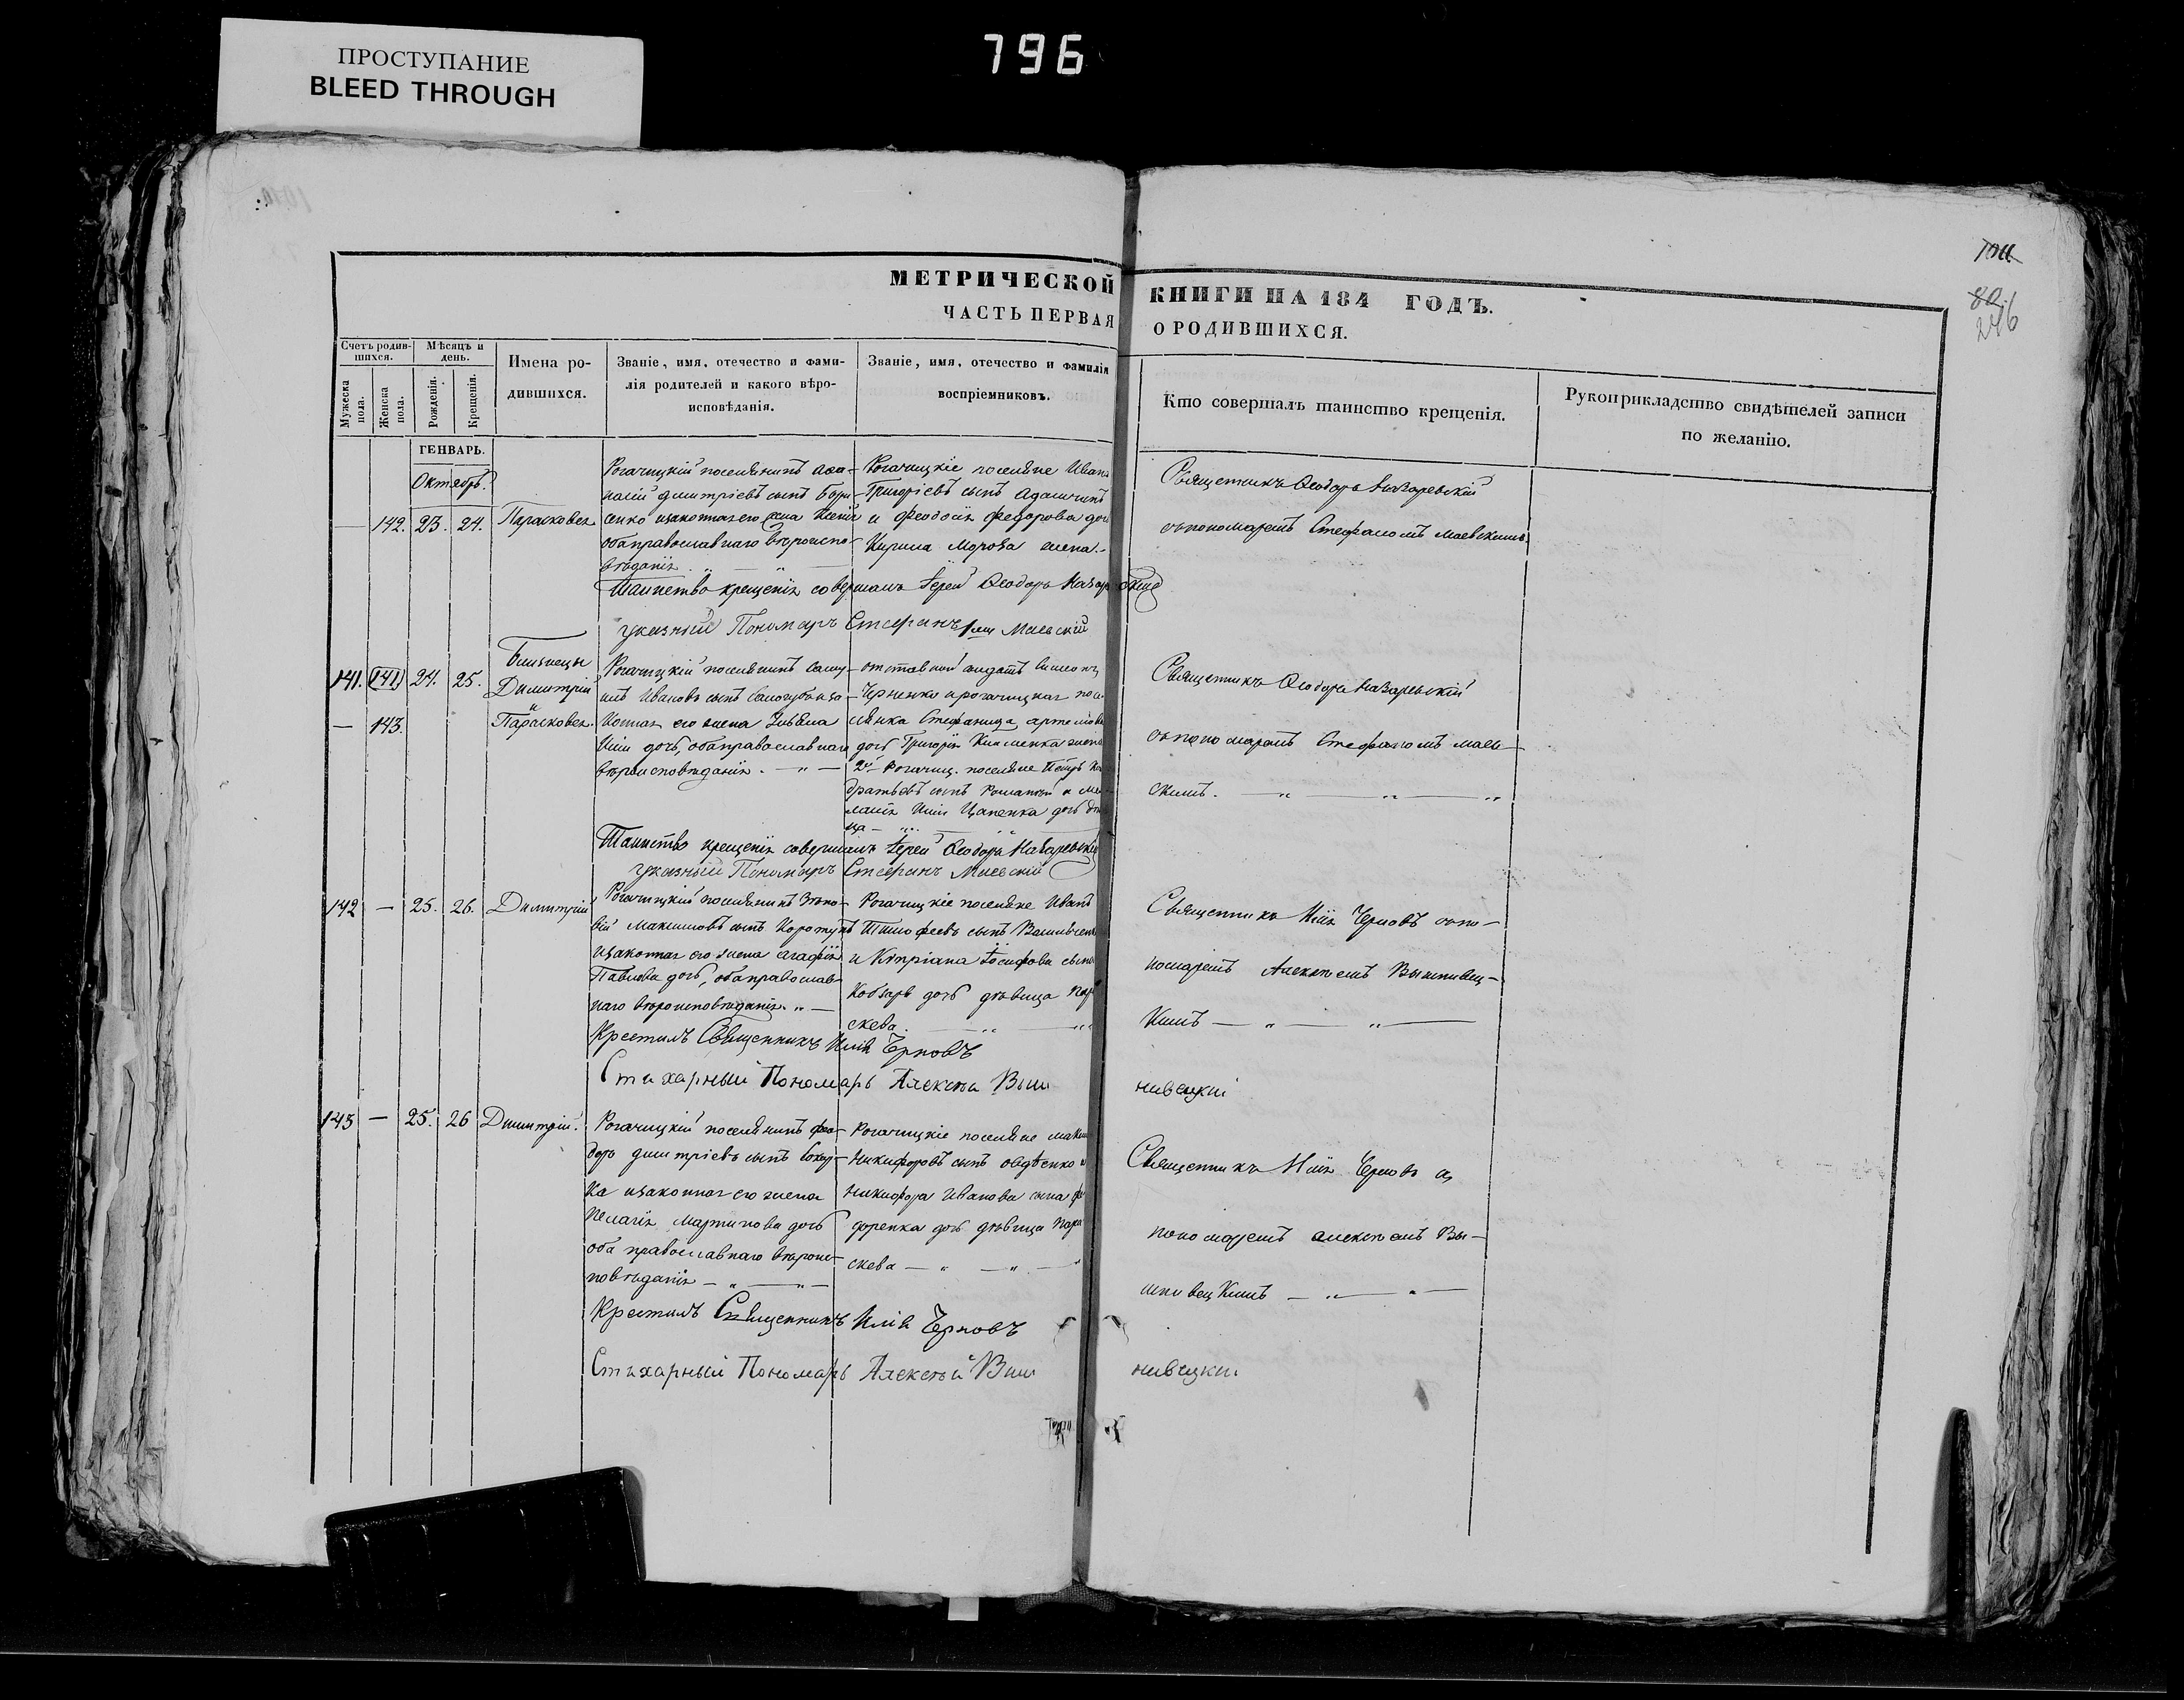 ПРОСТУПАНИЕ
BLEED THROUGH
796
МЕТРИЧЕСКОЙ КНИГИ НА 184 ГОДЪ.
ЧАСТЬ ПЕРВАЯ О РОДИВШИХСЯ.
Счетъ родив-
шихся.
Мужеска пола.
Женска пола.
Мѣсяцъ и
день.
Рожденія.
Крещенія.
Имена ро-
дившихся.
Званіе, имя, отечество и фами-
лія родителей и какого вѣро-
исповѣданія.
Званіе, имя, отечество и фамилія
воспріемниковъ.
Кто совершалъ таинство крещенія.
Рукоприкладство свидѣтелей записи
по желанію.
ГЕНВАРЬ.
Октябрь.
— 142. 23. 24. Парасковея
Рогачицкій поселянинъ
Димитріевъ сынъ
сенко изаконная его жена Ксенія
обаправославнаго вѣроиспо-
вѣданія. — „ —
Рогачицкіе поселяне Иванъ
Григоріевъ сынъ
и Феодосія Федорова дочь
Кирила Мороза жена.
Священникъ Ѳеодоръ Назаревскій
съпономаремъ Стефаномъ Маевскимъ.
Таинство крещенія совершалъ Іерей Ѳеодоръ Назаревскій
указный Пономарь Стефанъ Маевскій
141. (141) 24. 25. Близнецы
Димитрій
и
— 143. Парасковея.
Рогачицкій поселянинъ
Ивановъ сынъ иза-
конная его жена Ульяна
дочь, обаправославнаго
вѣроисповѣданія. — „ —
отставной солдатъ Симонъ
Черненко ирогачицкая посе-
лянка Стефанида
дочь Григорія жена
2й Рогачиц. поселяне Петръ
сынъ
Цапенка дочь
Священникъ Ѳеодоръ Назаревскій
съпономаремъ Стефаномъ Маев-
скимъ. — „ — „ — „
Таинство крещенія совершалъ Іерей Ѳеодоръ Назаревскій
указный Пономарь Стефанъ Маевскій
142 — 25. 26. Димитрій
Рогачицкій поселянинъ Зѣно-
вій Максимовъ сынъ Коротунъ
изаконная его жена Агафія
Павлова дочь, обаправослав-
наго вѣроисповѣданія. „ —
Рогачицкіе поселяне Иванъ
Тимофеевъ сынъ
и Кипріана Іосифова сына
Кобзаря дочь дѣвица Пара-
скева. — „ — „
Священникъ Илія Черновъ съпо-
номаремъ Алексѣемъ Вышнивец-
кимъ — „ — „ —
Крестилъ Священникъ Илія Черновъ
Стихарный Пономарь Алексѣй Виш
нивецкій
143 — 25. 26 Димитрій.
Рогачицкій поселянинъ Фео-
доръ Димитріевъ сынъ
ка изаконная его жена
Пелагія Мартинова дочь
оба православнаго вѣроис-
повѣданія — „ — „ —
Рогачицкіе поселяне
Никифоровъ сынъ Овдѣенко и
Никифора Иванова сына Фе-
доренка дочь дѣвица Пара-
скева — „ — „ —
Священникъ Илія Черновъ съ
пономаремъ Алексѣемъ Вы-
шнивецкимъ — „ — „ —
Крестилъ Священникъ Илія Черновъ
Стихарный Пономарь Алексѣй Виш
нивецкій
246